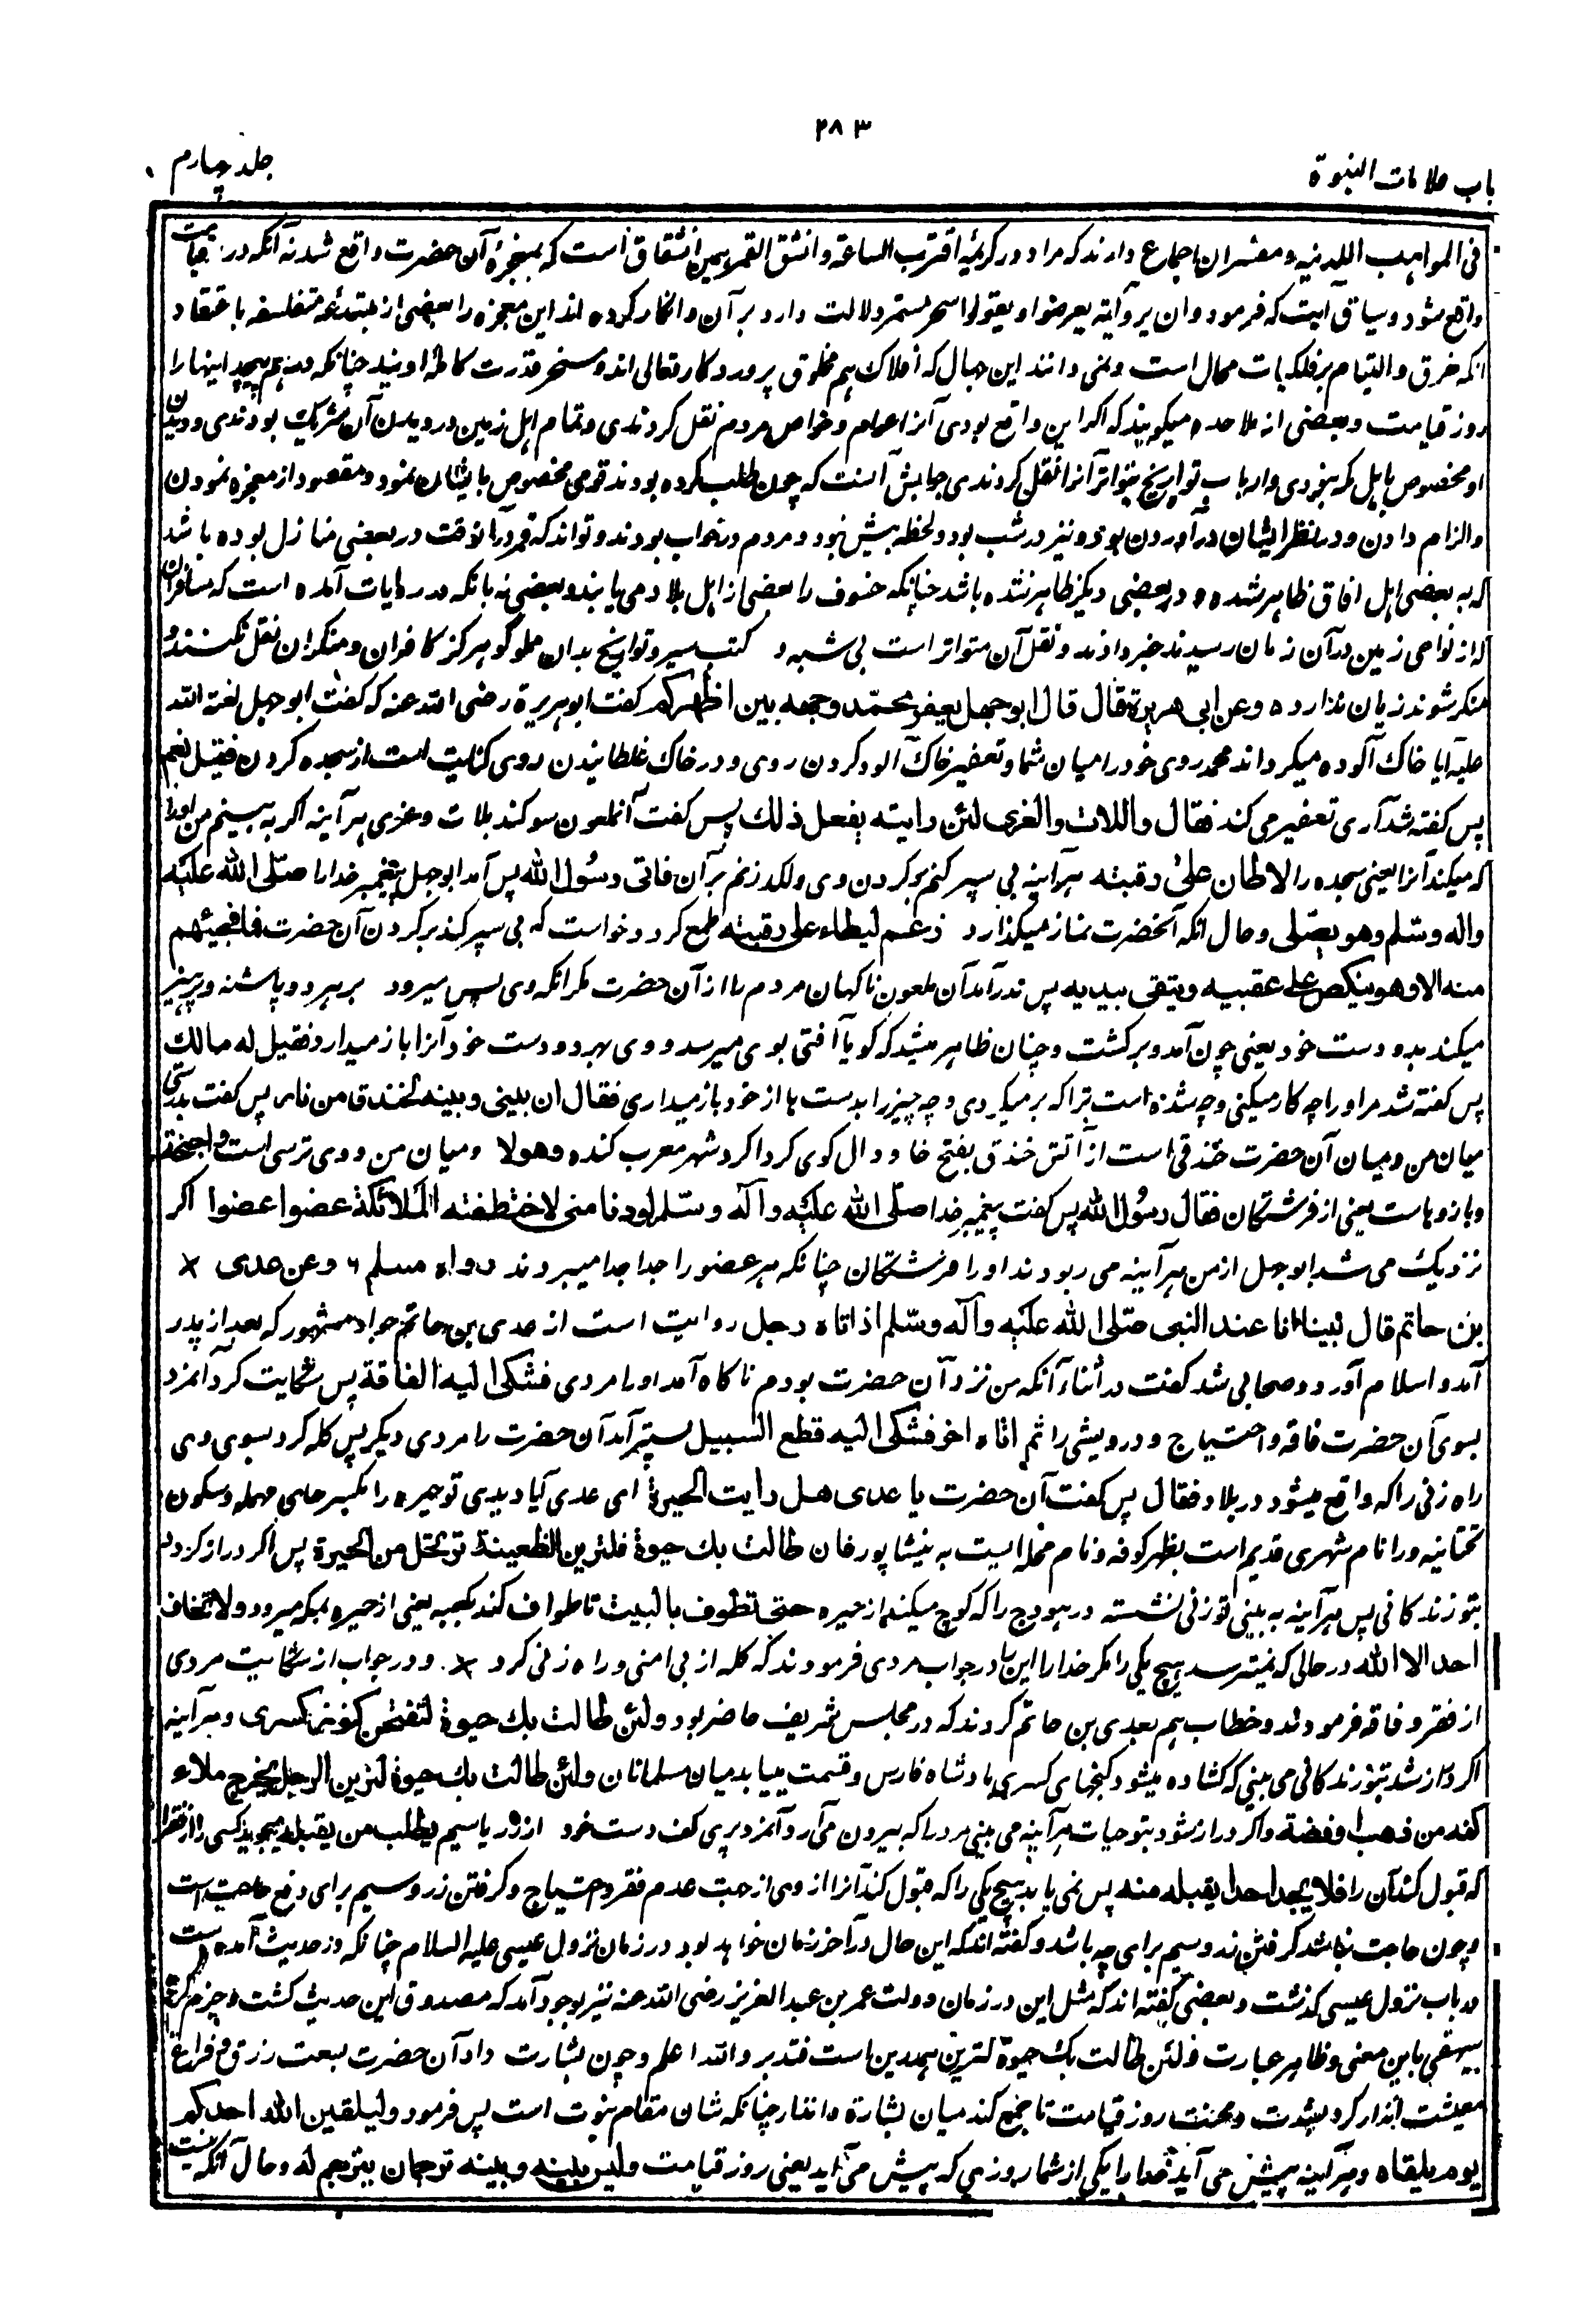 ۲۸۳
باب علامات النبوة
جلد چهارم
فی المواهب اللدنیه و مفسران اجماع دارند که مراد در کریمه اقترب الساعة وانشق القمر همین انشقاق است که بمعجزه آن حضرت واقع شد نه آنکه در قیامت
واقع شود و سیاق آیت که فرمود وان یروا آیة یعرضوا ویقولوا سحر مستمر دلالت دارد بر آن و انکار کرده اند این معجزه را بعضی از مبتدعه متفلسفه باعتقاد
انکه خرق و التیام بر فلکیات محال است و نمی دانند این جهال که افلاک هم مخلوق پروردکار تعالی اند و مسخر قدرت کامله اویند چنانکه در هم پیچد اینها را
روز قیامت و بعضی از ملاحده میکویند که اکر این واقع بودی آنرا عوام و خواص مردم نقل کردندی و تمام اهل زمین در دیدن آن شریک بودندی و دیدن
او مخصوص باهل مکه نبودی و ارباب تواریخ بتواتر آنرا نقل کردندی جوابش آنست که چون طلب کرده بودند قومی مخصوص بایشان نمود و مقصود از معجزه نمودن
و الزام دادن و در نظر ایشان در آوردن بود و نیز در شب بود و لحظه بیش نبود و مردم در خواب بودند و تواند که قمر در آنوقت در بعضی منازل بوده باشد
که به بعضی اهل افاق ظاهر شده و در بعضی دیکر ظاهر نشده باشد چنانکه خسوف را بعضی از اهل بلاد می یابند و بعضی نه بانکه در روایات آمده است که مسافران
که از نواحی زمین در آن زمان رسیدند خبر دادند و نقل آن متواتر است بی شبه و کتب سیر و تواریخ بدان مملو کو هرکز کافران و منکران نقل نکنند و
منکر شوند زیان ندارد ه وعن ابی هریرة قال قال ابوجهل یعفر محمد وجهه بین اظهرکم کفت ابوهریرة رضی الله عنه که کفت ابوجهل لعنة الله
علیه آیا خاک آلوده میکرداند محمد روی خود را میان شما و تعفیر خاک آلود کردن روی و در خاک غلطانیدن روی کنایت است از سجده کردن فقیل نعم
پس کفته شد آری تعفیر می کند فقال واللات والعزی لئن رایته یفعل ذلک پس کفت آنملعون سوکند بلات و عزی هرآینه اکر به بینم من او را
که میکند آنرا یعنی سجده را لاطان علی رقبته هرآینه پی سپر کنم بر کردن وی و لکد زنم بر آن فاتی رسول الله پس آمد ابوجهل پیغمبر خدا را صلی الله علیه
واله وسلم وهو یصلی و حال انکه آنحضرت نماز میکذارد زعم لیطاء علی رقبته طمع کرد و خواست که پی سپر کند بر کردن آن حضرت فما فجیئهم
منه الا وهو ینکص علی عقبیه ویتقی بیدیه پس ندرآمد آن ملعون ناکهان مردم را از آن حضرت مکر انکه وی پس میرود بر هر دو پاشنه و پرهیز
میکند بدو دست خود یعنی چون آمد و برکشت و چنان ظاهر میشد که کویا آفتی بوی میرسد و وی بهر دو دست خود آنرا باز میدارد فقیل له مالک
پس کفته شد مر او را چه کار میکنی و چه شده است ترا که بر میکردی و چه چیز را بدست ها از خود باز میداری فقال ان بینی وبینه لخندق من نار پس کفت بدرستی
میان من و میان آن حضرت خندقی است از آتش خندق بفتح خا و دال کوی کرداکرد شهر معرب کنده وهولا و میان من و وی ترسی است واجنحة
و بازوهاست یعنی از فرشتکان فقال رسول الله پس کفت پیغمبر خدا صلی الله علیه وآله وسلم لو دنا منی لاختطفته الملائکة عضوا عضوا اکر
نزدیک می شد ابوجهل از من هرآینه می ربودند او را فرشتکان چنانکه هر عضو را جدا جدا میبردند رواه مسلم ۶ وعن عدی ×
بن حاتم قال بینا انا عند النبی صلی الله علیه وآله وسلم اذ اتاه رجل روایت است از عدی بن حاتم جواد مشهور که بعد از پدر
آمد و اسلام آورد و صحابی شد کفت در اثناء آنکه من نزد آن حضرت بودم ناکاه آمد او را مردی فشکی الیه الفاقة پس شکایت کرد آنمرد
بسوی آن حضرت فاقه و احتیاج و درویشی را ثم اتاه اخر فشکی الیه قطع السبیل پستر آمد آن حضرت را مردی دیکر پس کله کرد بسوی وی
راه زنی را که واقع میشود در بلاد فقال پس کفت آن حضرت یا عدی هل رایت الحیرة ای عدی آیا دیدی تو حیره را بکسر حای مهمله و سکون
تحتانیه و را نام شهری قدیم است بظهر کوفه و نام محله ایست به نیشاپور فان طالت بک حیوة فلترین الظعینة ترتحل من الحیرة پس اکر دراز کردد
بتو زندکانی پس هرآینه به بینی تو زنی نشسته در هودج را که کوچ میکند از حیره حتی تطوف بالبیت تا طواف کند بکعبه یعنی از حیره بمکه میرود ولا تخاف
احدا الا الله در حالی که نمیترسد هیچ یکی را مکر خدا را این را در جواب مردی فرمودند که کله از بی امنی و راه زنی کرد ×. و در جواب از شکایت مردی
از فقر و فاقه فرمودند و خطاب هم بعدی بن حاتم کردند که در مجلس شریف حاضر بود ولئن طالت بک حیوة لتفتحن کنوز کسری و هرآینه
اکر دراز شد بتو زندکانی می بینی که کشاده میشود کنجهای کسری پادشاه فارس و قسمت مییابد میان مسلمانان ولئن طالت بک حیوة لترین الرجل یخرج ملاء
کفه من ذهب او فضة و اکر دراز شود بتو حیات هرآینه می بینی مرد را که بیرون می آرد آنمرد پری کف دست خود از زر یا سیم یطلب من یقبله میجوید کسی را از فقرا
که قبول کند آن را فلا یجد احدا یقبله منه پس نمی یابد هیچ یکی را که قبول کند آنرا از وی از جهت عدم فقر و احتیاج و کرفتن زر و سیم برای دفع حاجت است
و چون حاجت نباشد کرفتن زر و سیم برای چه باشد و کفته اند که این حال در آخر زمان خواهد بود در زمان نزول عیسی علیه السلام چنانکه در حدیث آمده است
در باب نزول عیسی کذشت و بعضی کفته اند که مثل این در زمان دولت عمر بن عبد العزیز رضی الله عنه نیز بوجود آمد که مصدوق این حدیث کشت و جزم کرده
بیهقی باین معنی و ظاهر عبارت ولئن طالت بک حیوة لترین همدین است فتدبر والله اعلم و چون بشارت داد آن حضرت بسعت رزق و فراغ
معیشت انذار کرد بشدت و محنت روز قیامت تا جمع کند میان بشارة و انذار چنانکه شان مقام نبوت است پس فرمود ولیلقین الله احدکم
یوم یلقاه و هرآینه پیش می آید خدا را یکی از شما روزی که پیش می آید یعنی روز قیامت ولیس بینه وبینه ترجمان یترجم له و حال آنکه نیست